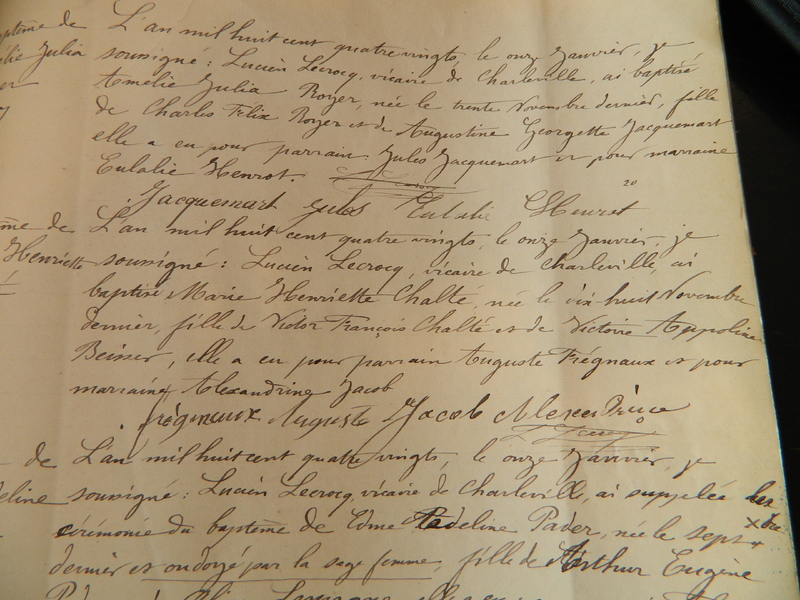 ptême de
élie Julia
L'an mil huit cent quatre vingts, le onze Janvier, je
soussigné : Lucien Lecrocq, vicaire de Charleville, ai baptisé
Amélie Julia Royer, née le trente Novembre dernier, fille
de Charles Félix Royer et de Augustine Georgette Jacquemart
elle a eu pour parrain Jules Jacquemart et pour marraine
Eulalie Henrot.
Jacquemart Jules Eulalie
me de
Henriette
L'an mil huit cent quatre vingts, le onze Janvier, je
soussigné : Lucien Lecrocq, vicaire de Charleville, ai
baptisé Marie Henriette Chalté, née le dix-huit Novembre
dernier, fille de Victor François Chalté et de Victoire Appoline
elle a eu pour parrain Auguste Frégnaux et pour
marraine Alexandrine Jacob
Auguste Jacob
de
deline
L'an mil huit cent quatre vingts, le onze Janvier, je
soussigné : Lucien Lecrocq, vicaire de Charleville, ai suppléé les
cérémonie du baptême de Edme Adeline Pader, née le sept
dernier et ondoyé par la sage femme, fille de Arthur Eugène